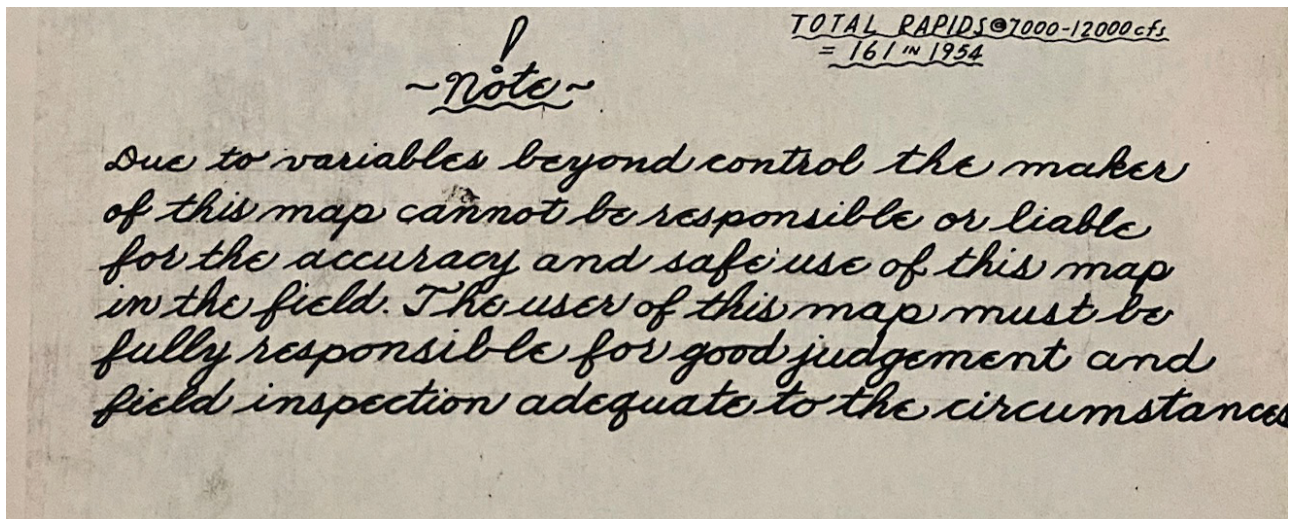 TOTAL RAPIDS@7000-12000cfs
= 161 IN 1954
!
~Note~
Due to variables beyond control the maker
of this map cannot be responsible or liable
for the accuracy and safe use of this map
in the field. The user of this map must be
fully responsible for good judgement and
field inspection adequate to the circumstances